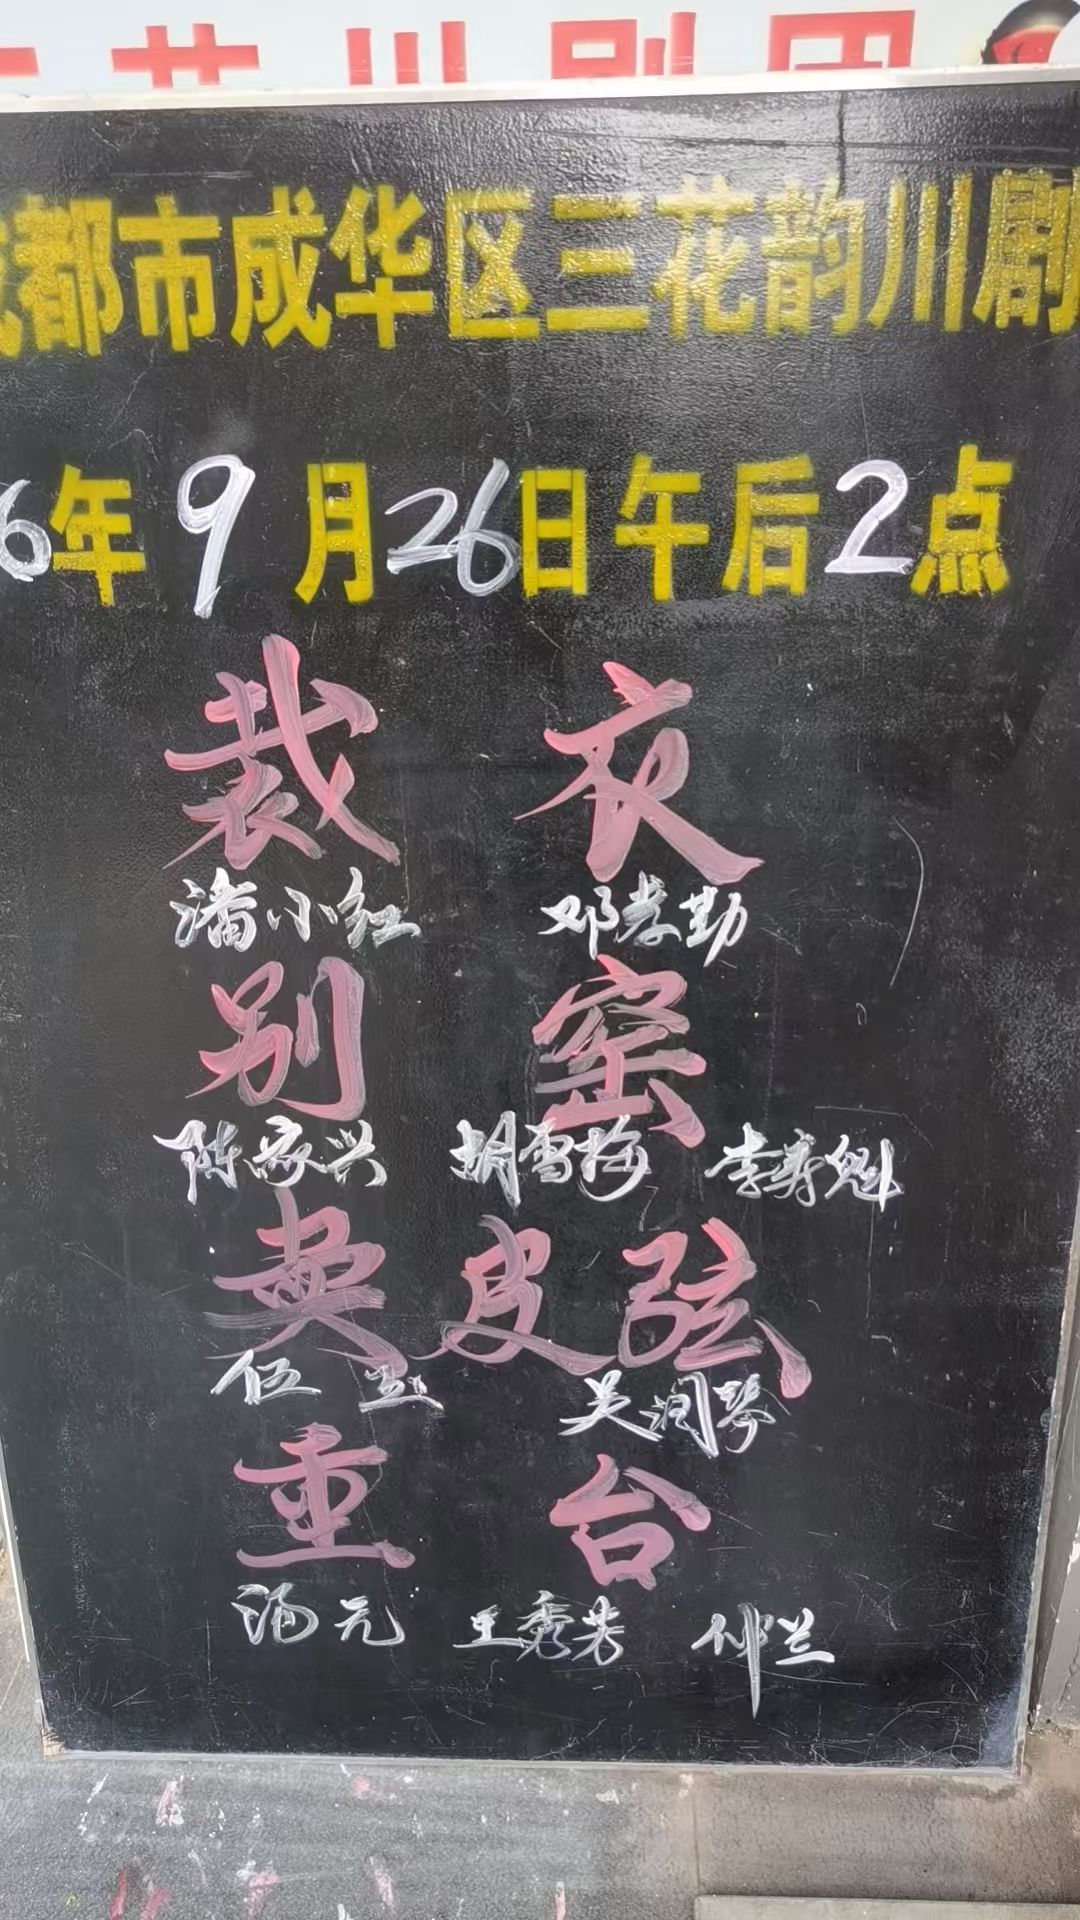 花川剧团
都市成华区三花韵川剧
6年9月26日午后2点
裁 衣
潘小红 邓孝勤
别 窑
陈家兴 胡雪梅 李寿魁
卖皮弦
伍 吴润琴
重 台
汤元 王秀芳 兰